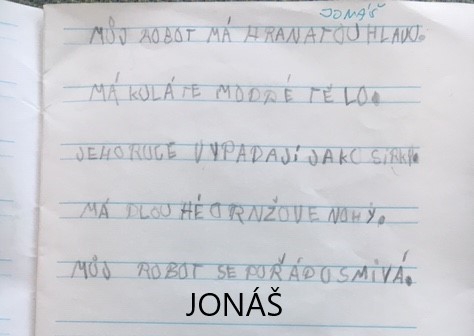 JONÁŠ
MŮJ ROBOT MÁ HRANATOU HLAVU.
MÁ KULÁTE MODRÉ TĚLO.
JEHO RUCE VYPADAJÍ JAKO SIRKY.
MÁ DLOUHÉ ORNŽOVE NOHÝ.
MŮJ ROBOT SE POŘÁD USMIVÁ.
JONÁŠ